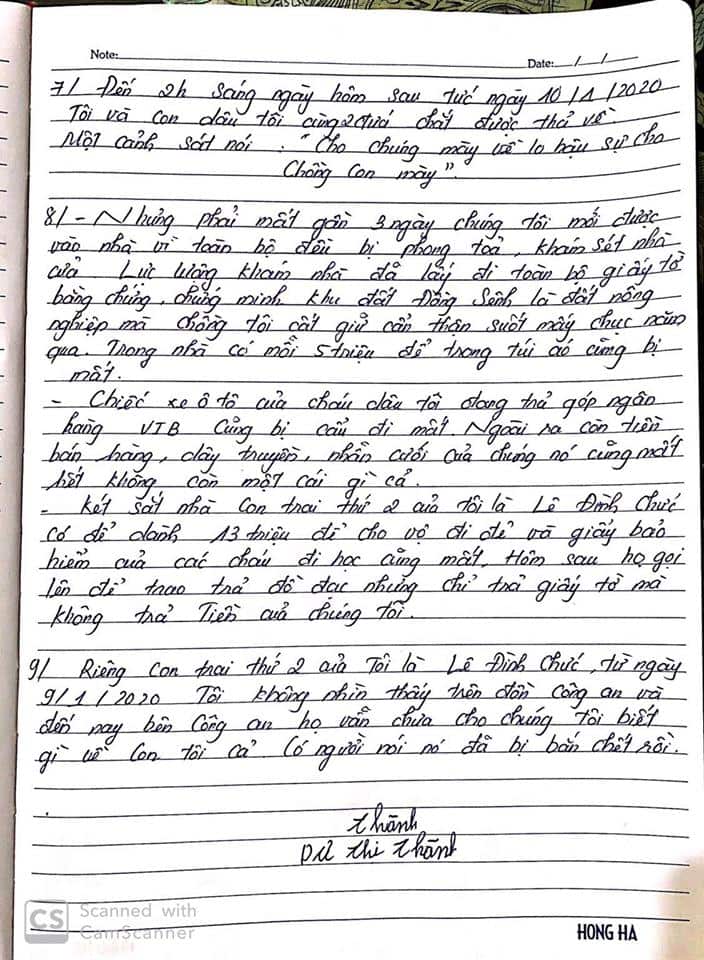 Note: Date: / /
7/ Đến 2h sáng ngày hôm sau tức ngày 10/1/2020
Tôi và con dâu tôi cùng 2 đứa chắt được thả về
Một cảnh sát nói : "Cho chúng mày về lo hậu sự cho
Chồng con mày".
8/ - Nhưng phải mất gần 3 ngày chúng tôi mới được
vào nhà vì toàn bộ đều bị phong toả, khám sét nhà
cửa Lực lượng khám nhà đã lấy đi toàn bộ giấy tờ
bằng chứng, chứng minh khu đất Đồng Sênh là đất nông
nghiệp mà chồng tôi cất giữ cẩn thận suốt mấy chục năm
qua. Trong nhà có mỗi 5 triệu để trong túi áo cũng bị
mất.
- Chiếc xe ô tô của cháu dâu tôi đang trả góp ngân
hàng VTB Cũng bị cẩu đi mất. Ngoài ra còn tiền
bán hàng, dây truyền, nhẫn cưới của chúng nó cũng mất
hết không còn một cái gì cả.
- Két sắt nhà con trai thứ 2 của tôi là Lê Đình Chức
có để dành 13 triệu để cho vợ đi đẻ và giấy bảo
hiểm của các cháu đi học cũng mất, Hôm sau họ gọi
lên để trao trả đồ đạc nhưng chỉ trả giấy tờ mà
không trả Tiền của chúng tôi.
9/ Riêng con trai thứ 2 của Tôi là Lê Đình Chức, từ ngày
9/1/2020 Tôi không nhìn thấy trên đồn công an và
đến nay bên Công an họ vẫn chưa cho chúng tôi biết
gì về con tôi cả. Có người nói nó đã bị bắn chết rồi.
Thành
Dư Thị Thành
CS Scanned with
CamScanner
HONG HA